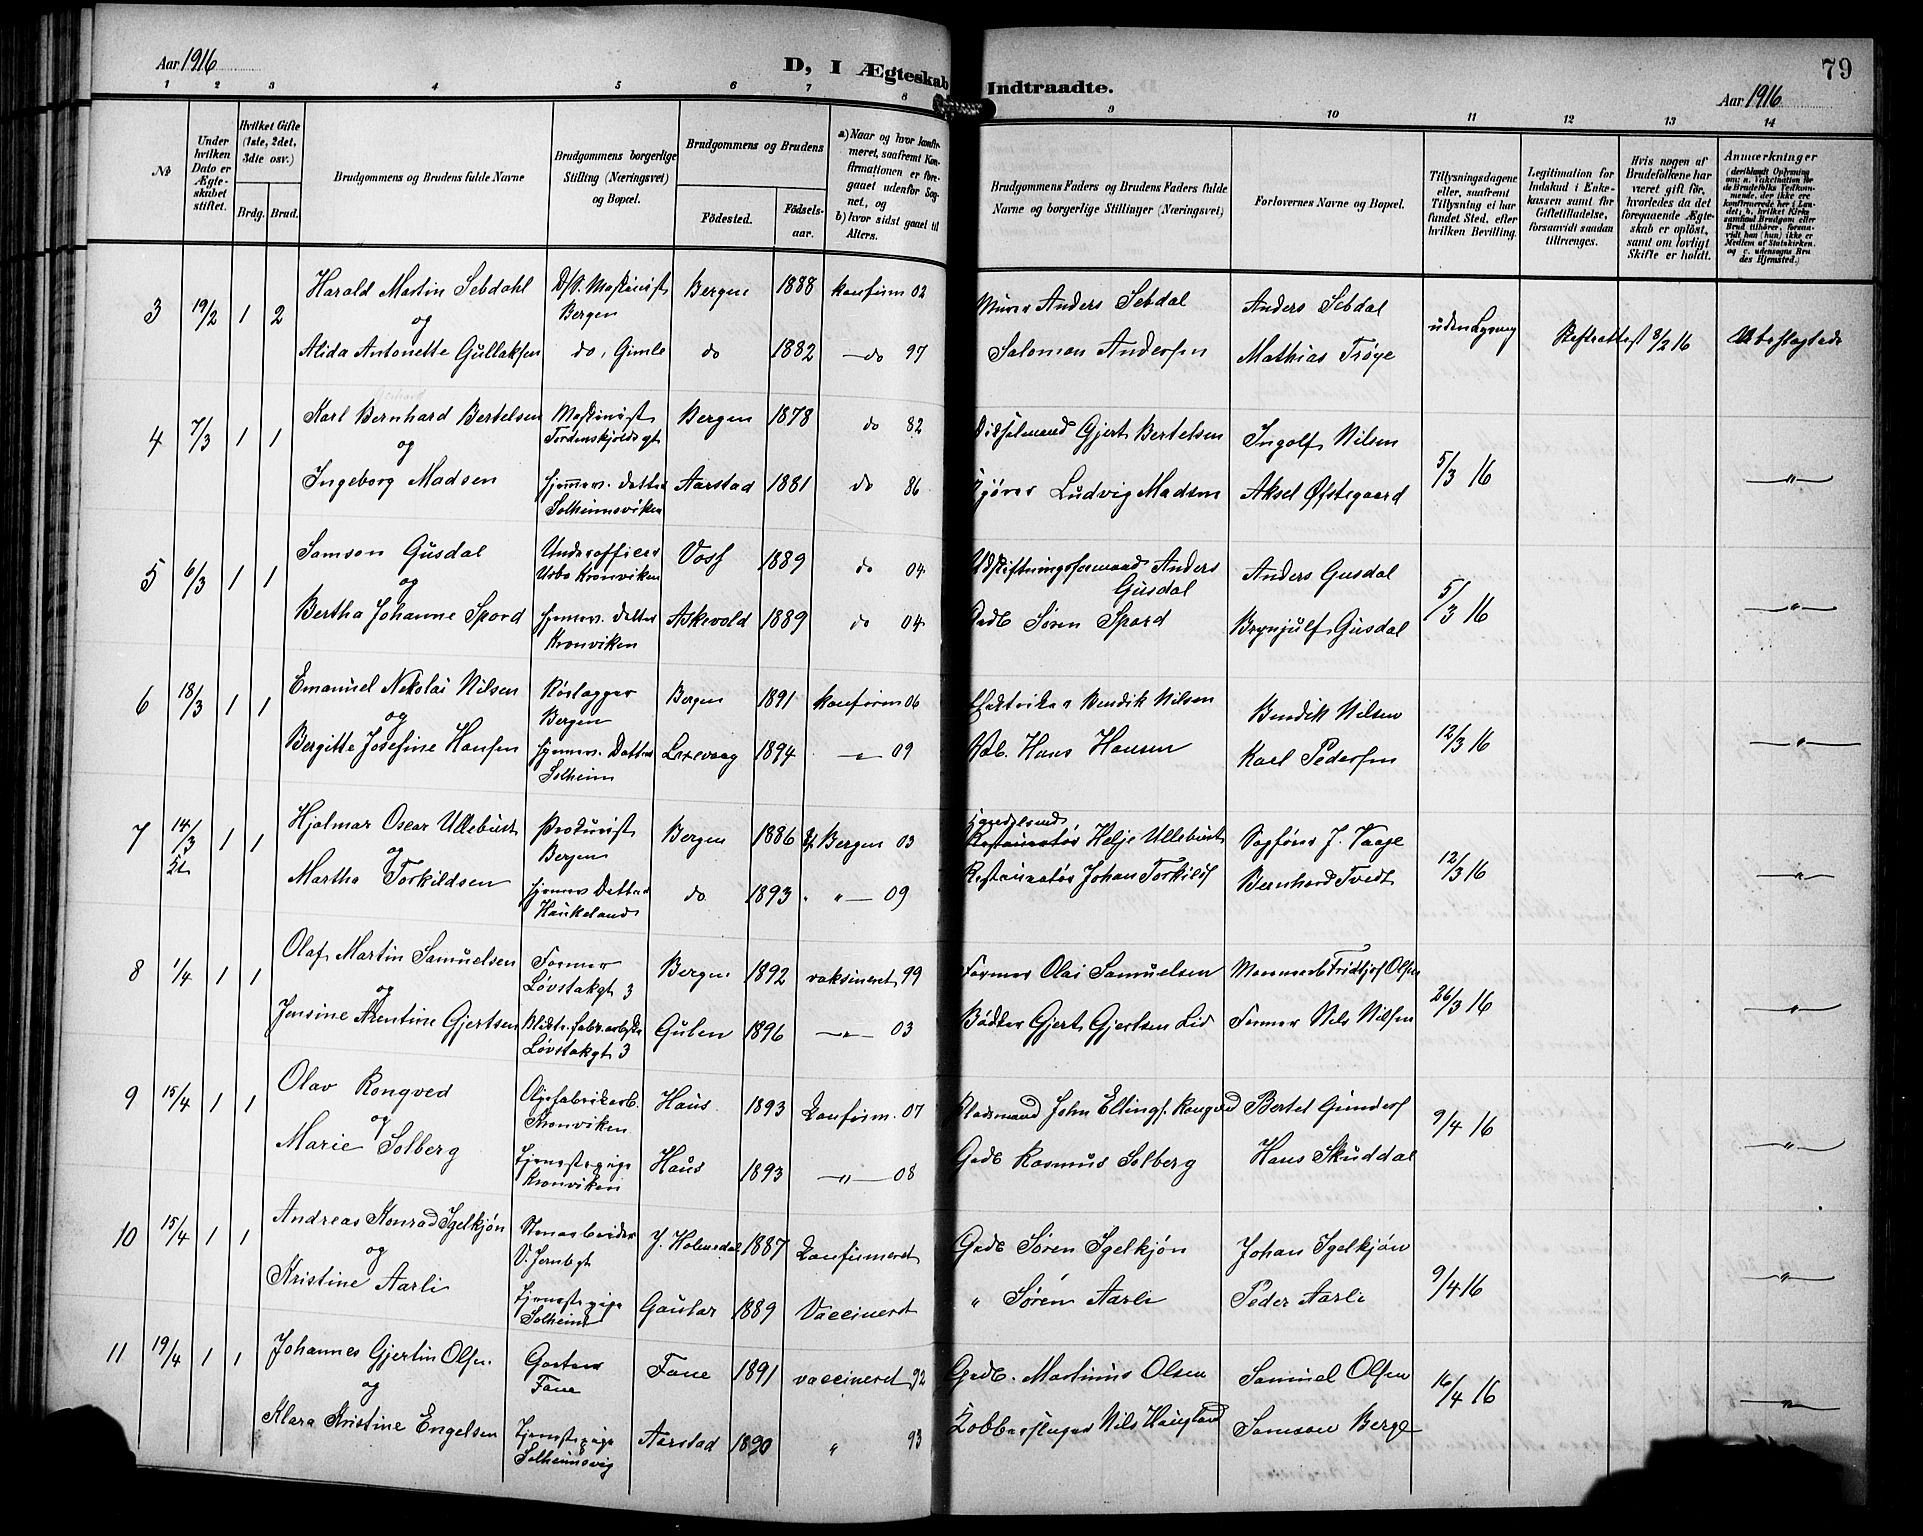 Aar 1916
D, I Ægteskab Indtraadte.
79
Aar 1916
1 2 3 4 5 6 7 8 9 10 11 12 13 14
No
Under hvilken Dato er Ægteskabet stiftet.
Hvilket Gifte (1ste, 2det, 3die osv.)
Brdg. Brud.
Brudgommens og Brudens fulde Navne
Brudgommens borgerlige Stilling (Næringsvei) og Bopæl.
Brudgommens og Brudens
Fødested. Fødselsaar.
a) Naar og hvor konfirmeret, saafremt Konfirmationen er foregaaet udenfor Sognet, og
b) hvor sidst gaaet til Alters.
Brudgommens Faders og Brudens Faders fulde Navne og borgerlige Stillinger (Næringsvei)
Forlovernes Navne og Bopæl.
Tillysningsdagene eller, saafremt Tillysning ei har fundet Sted, efter hvilken Bevilling.
Legitimation for Indskud i Enkekassen samt for Giftetilladelse, forsaavidt saadan tiltrænges.
Hvis nogen af Brudefolkene har været gift før, hvorledes da det foregaaende Ægteskab er opløst, samt om lovligt Skifte er holdt.
Anmærkninger
3 19/2 1 2 Harald Martin Sebdahl Bergen Bergen 1888 konfirm 02 Murer Anders Sebdal Anders Sebdal
og
Alida Antonette Gullaksen do, Gimle do 1882 do 97 Salomon Andersen Mathias Trøye 8/2 16 Ubeslægtede
4 7/3 1 1 Karl Bernhard Bertelsen Maskinist Tordenskjoldsgt Bergen 1878 do 82 Gjert Bertelsen Ingolf Nilsen
og
Ingeborg Madsen hjemmev. datter Solheimsviken Aarstad 1881 do 86 Ludvig Madsen Aksel Øfstegaard 5/3 16 "
5 6/3 1 1 Samson Gusdal Underofficer Kronviken Voss 1889 do 04 Udskiftningsformand Anders Gusdal Anders Gusdal
og
Bertha Johanne Spord hjemmev. Datter Kronviken Askevold 1889 do 04 Gdb Søren Spord Brynjulf Gusdal 5/3 16 "
6 18/3 1 1 Emanuel Nikolai Nilsen Rørlægger Bergen Bergen 1891 konfirm 06 Bendik Nilsen Bendik Nilsen
og
Bergitte Josefine Hansen hjemmev. Datter Solheim Laxevaag 1894 " 09 Hans Hansen Karl Pedersen 12/3 16 "
7 14/3 1 1 Hjalmar Oscar Ullebust Bergen Bergen 1886 Bergen 03 Helje Ullebust Sagfører J. Vaage
og
Martha Torkildsen hjemmev Datter Haukeland do 1893 " 09 Restauratør Johan Torkilds Bernhard Tvedt 12/3 16 "
8 1/4 1 1 Olaf Martin Samuelsen Former Løvstakgt 3 Bergen 1892 vaksineret 99 Former Olai Samuelsen Fridtjof Olsen
og
Jensine Arentine Gjertsen Løvstakgt 3 Gulen 1896 " 03 Bødker Gjert Gjertsen Lid Former Nils Nilsen 26/3 16 "
9 15/4 1 1 Olav Rongved Oljefabrikarb. Kronviken Haus 1893 Konfirm. 07 Pladsmand John Ellings. Rongved Bertel Gunders
og
Marie Solberg Tjenestepige Kronviken Haus 1893 " 08 Gdb Rasmus Solberg Hans Skuddal 9/4 16 "
10 15/4 1 1 Andreas Konrad Igelkjøn Stenarbeider V. Jernbgt Y. Holmedal 1887 Konfirmeret Gdb Søren Igelkjøn Johan Igelkjøn
og
Kristine Aarli Tjenestepige Solheim Gaular 1889 Vaccineret " Søren Aarli Peder Aarli 9/4 16 "
11 19/4 1 1 Johannes Gjertin Olsen Gartner Fane Fane 1891 vaccineret 92 Gdb. Martinus Olsen Samuel Olsen
og
Klara Kristine Engelsen Tjenestepige Solheimsvig Aarstad 1890 " 93 Kobberslager Nils Haugland Samson Berge 16/4 16 "